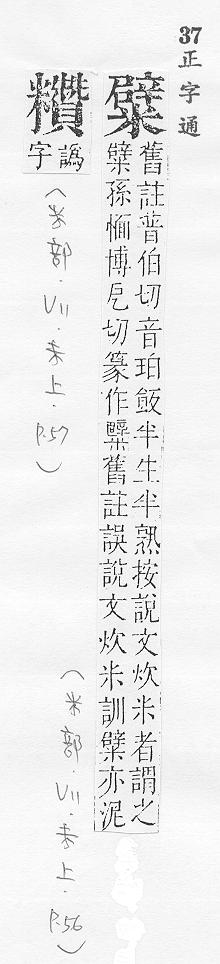 37正字通
糪 舊註普伯切音珀飯半生半熟按說文炊米者謂之
糪孫愐博戹切篆作糪舊註誤說文炊米訓糪亦泥
(米部.VII.未上.P.56)
䊭 譌字
(米部.VII.未上.P.57)